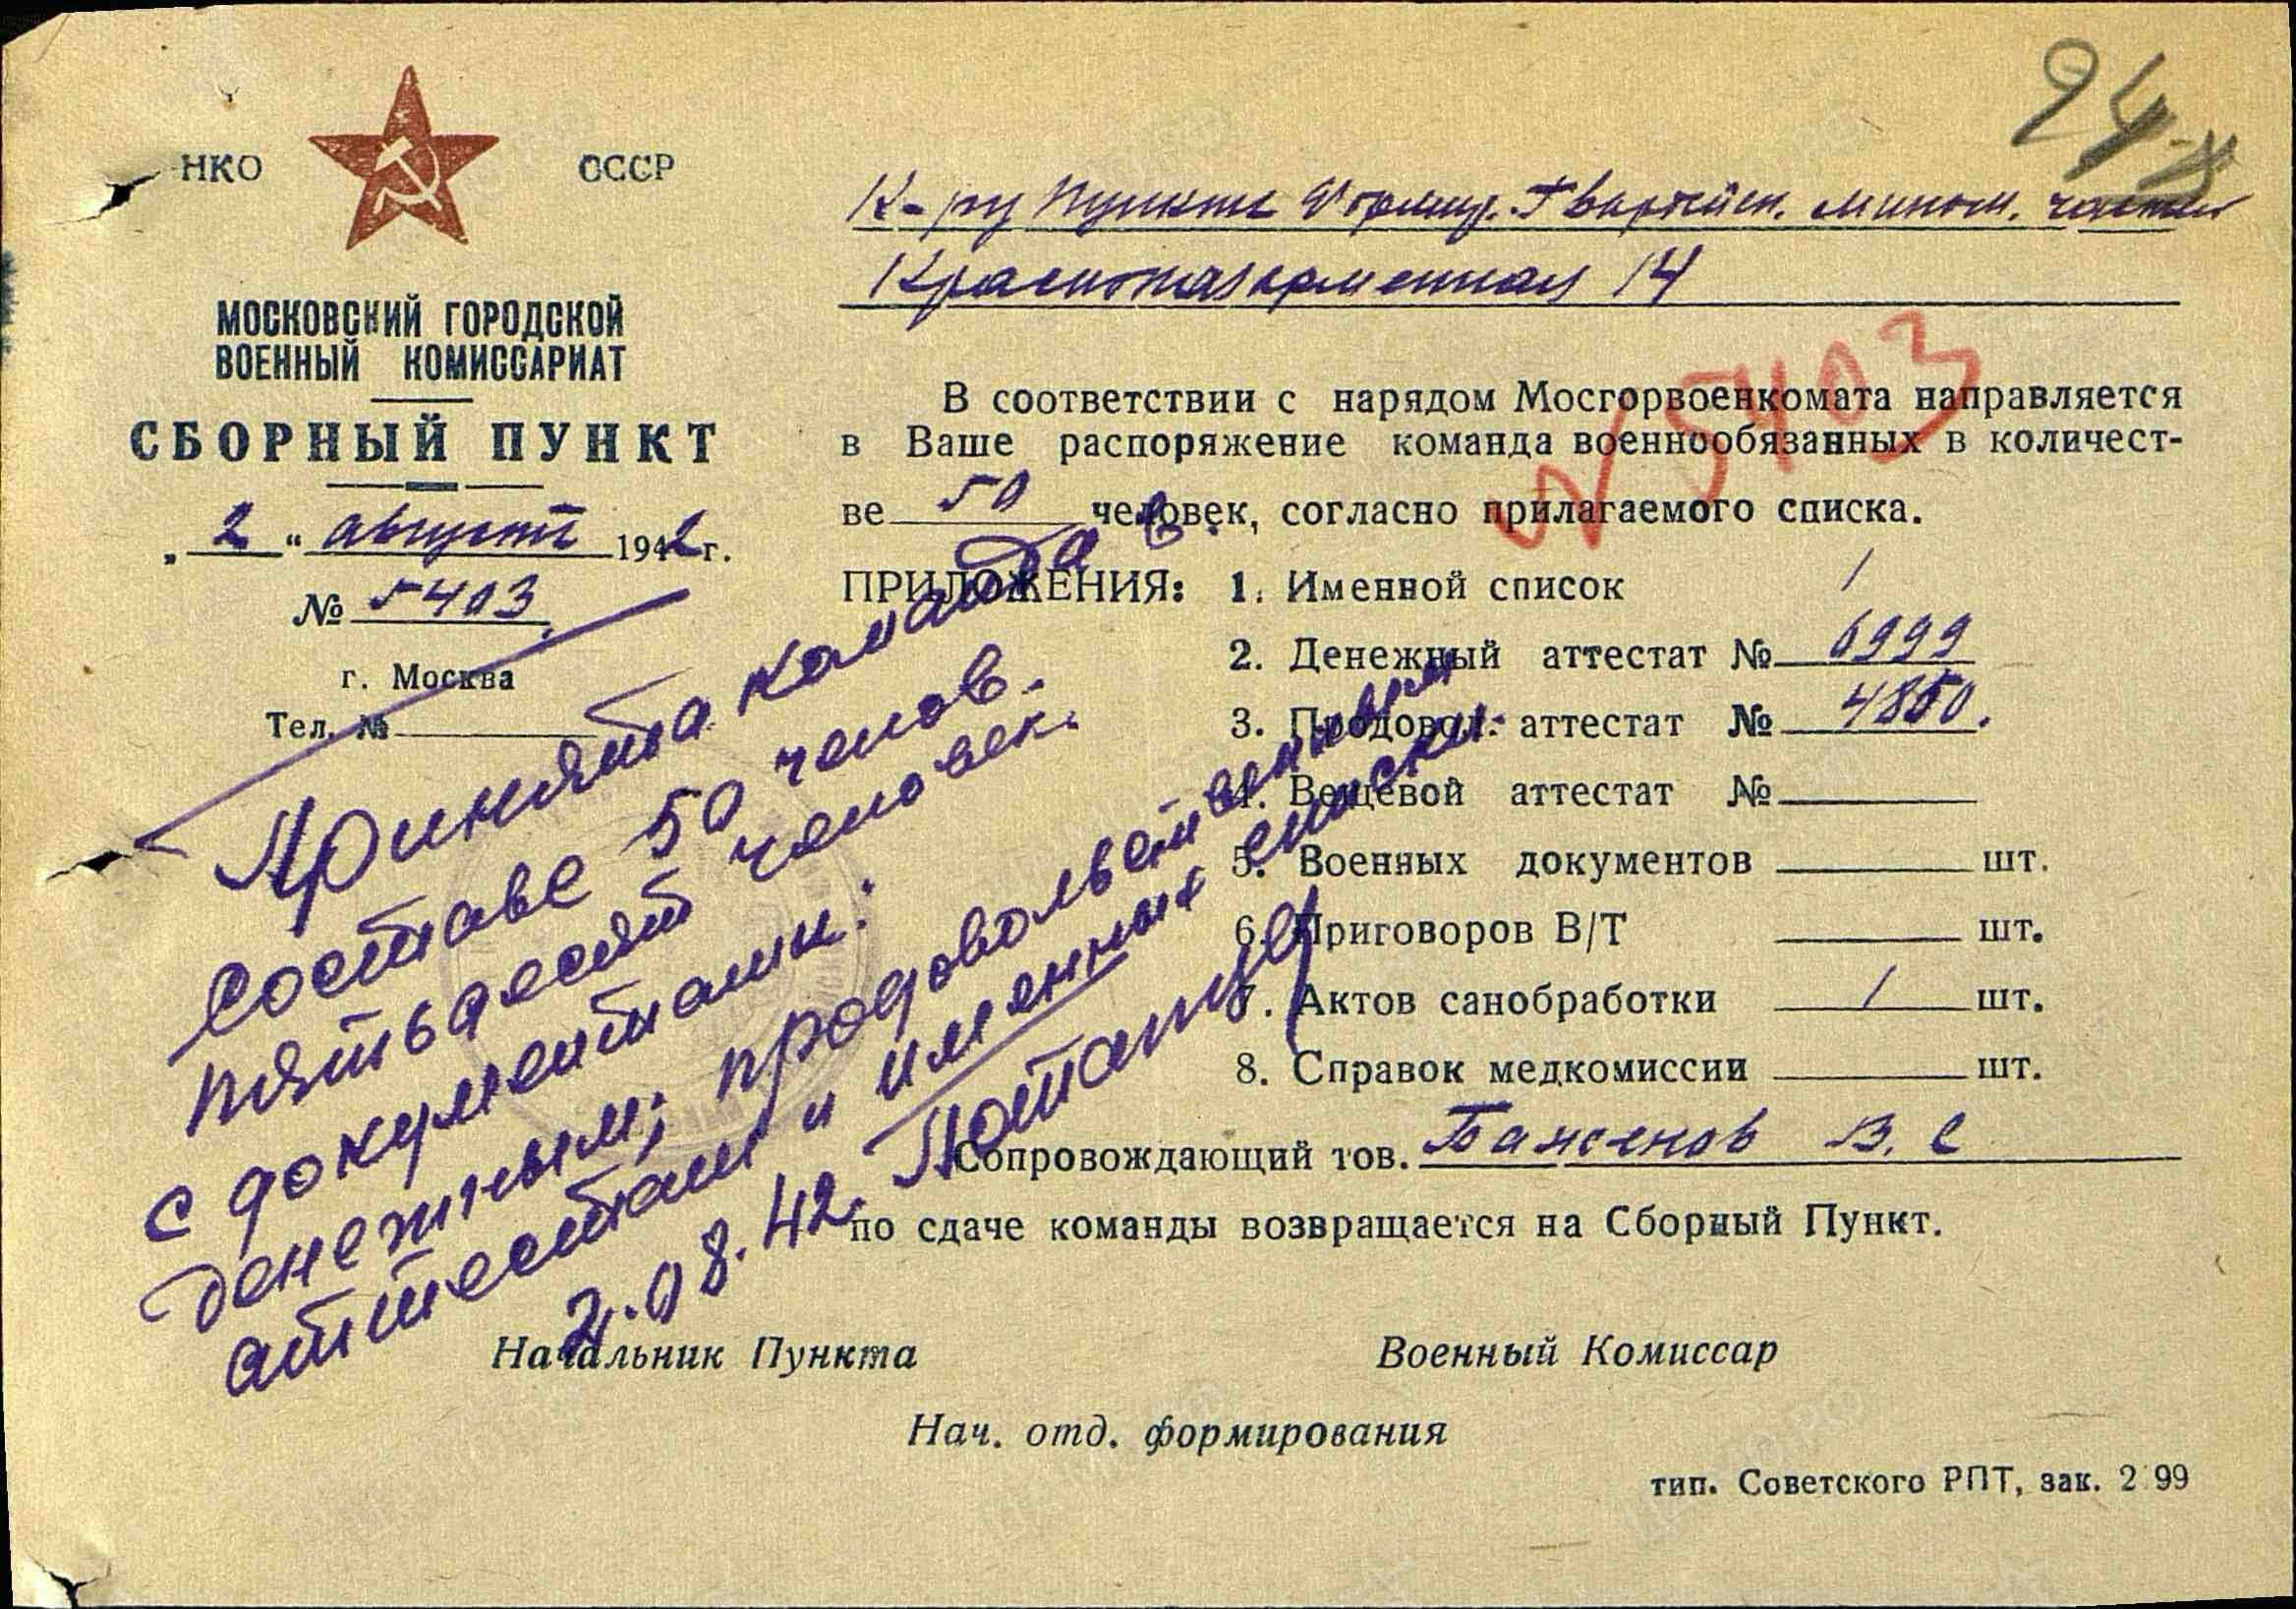 НКО СССР
МОСКОВСКИЙ ГОРОДСКОЙ
ВОЕННЫЙ КОМИССАРИАТ
СБОРНЫЙ ПУНКТ
„2“ августа 1942 г.
№ 5403.
г. Москва
Тел. №
24
К-ру Пункта Формир. Гвардейск. мином. частей
Красноказарменная 14
№ 5403
В соответствии с нарядом Мосгорвоенкомата направляется
в Ваше распоряжение команда военнообязанных в количест-
ве 50 человек, согласно прилагаемого списка.
ПРИЛОЖЕНИЯ: 1. Именной список 1
2. Денежный аттестат № 6999
3. Продовол. аттестат № 4850.
4. Вещевой аттестат №
5. Военных документов шт.
6. Приговоров В/Т шт.
7. Актов санобработки 1 шт.
8. Справок медкомиссии шт.
Сопровождающий тов. Баженов В. С
по сдаче команды возвращается на Сборный Пункт.
Принята команда в
составе 50 челов.
пятьдесят человек.
с документами:
денежным, продовольственным
аттестам и именным списки.
2.08.42.
Начальник Пункта Военный Комиссар
Нач. отд. формирования
тип. Советского РПТ, зак. 2 99